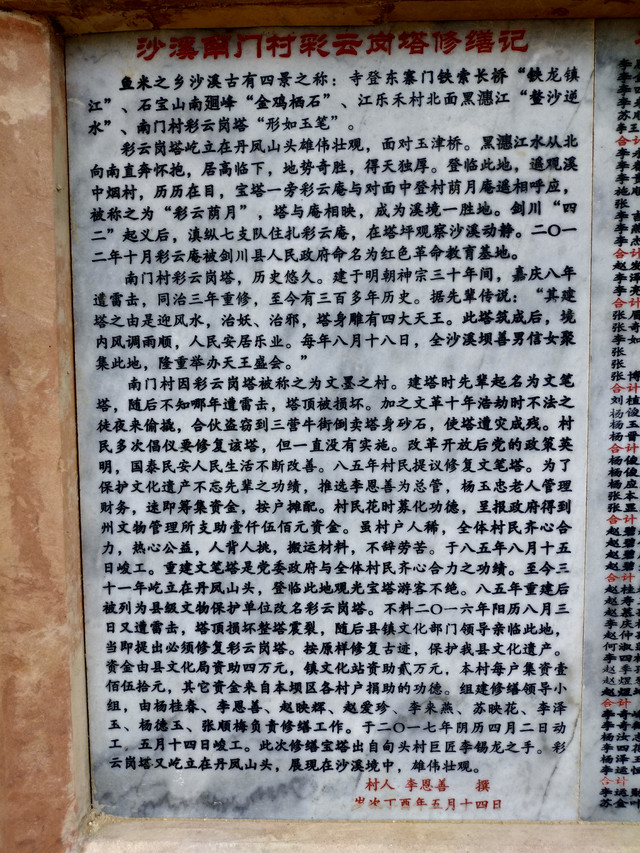 沙溪南门村彩云岗塔修缮记
鱼米之乡沙溪古有四景之称：寺登东寨门铁索长桥“铁龙镇
江”、石宝山南廻峰“金鸡栖石”、江乐禾村北面黑潓江“鳌沙逆
水”、南门村彩云岗塔“形如玉笔”。
彩云岗塔屹立在丹凤山头雄伟壮观，面对玉津桥。黑潓江水从北
向南直奔怀抱，居高临下，地势奇胜，得天独厚。登临此地，遥观溪
中烟村，历历在目，宝塔一旁彩云庵与对面中登村荫月庵遥相呼应，
被称之为“彩云荫月”，塔与庵相映，成为溪境一胜地。剑川“四
二”起义后，滇纵七支队住扎彩云庵，在塔坪观察沙溪动静。二〇一
二年十月彩云庵被剑川县人民政府命名为红色革命教育基地。
南门村彩云岗塔，历史悠久。建于明朝神宗三十年间，嘉庆八年
遭雷击，同治三年重修，至今有三百多年历史。据先辈传说：“其建
塔之由是迎风水，治妖、治邪，塔身雕有四大天王。此塔筑成后，境
内风调雨顺，人民安居乐业。每年八月十八日，全沙溪坝善男信女聚
集此地，隆重举办天王盛会。”
南门村因彩云岗塔被称之为文墨之村。建塔时先辈起名为文笔
塔，随后不知哪年遭雷击，塔顶被损坏。加之文革十年浩劫时不法之
徒夜来偷撬，合伙盗窃到三营牛街倒卖塔身砂石，使塔遭灾成残。村
民多次倡仪要修复该塔，但一直没有实施。改革开放后党的政策英
明，国泰民安人民生活不断改善。八五年村民提议修复文笔塔。为了
保护文化遗产不忘先辈之功绩，推选李恩善为总管，杨玉忠老人管理
财务，速即筹集资金，按户摊配。村民花时募化功德，呈报政府得到
州文物管理所支助壹仟伍佰元资金。虽村户人稀，全体村民齐心合
力，热心公益，人背人挑，搬运材料，不辞劳苦。于八五年八月十五
日峻工。重建文笔塔是党委政府与全体村民齐心合力之功绩。至今三
十一年屹立在丹凤山头，登临此地观光宝塔游客不绝。八五年重建后
被列为县级文物保护单位改名彩云岗塔。不料二〇一六年阳历八月三
日又遭雷击，塔顶损坏整塔震裂，随后县镇文化部门领导亲临此地，
当即提出必须修复彩云岗塔。按原样修复古迹，保护我县文化遗产。
资金由县文化局资助四万元，镇文化站资助贰万元，本村每户集资壹
佰伍拾元，其它资金来自本坝区各村户捐助的功德。组建修塔领导小
组，由杨桂春、李恩善、赵映辉、赵爱珍、李来燕、苏映花、李泽
玉、杨德玉、张顺梅负责修缮工作。于二〇一七年阴历四月二日动
工，五月十四日峻工。此次修缮宝塔出自向头村巨匠李锡龙之手。彩
云岗塔又屹立在丹凤山头，展现在沙溪境中，雄伟壮观。
村人 李恩善 撰
岁次丁酉年五月十四日